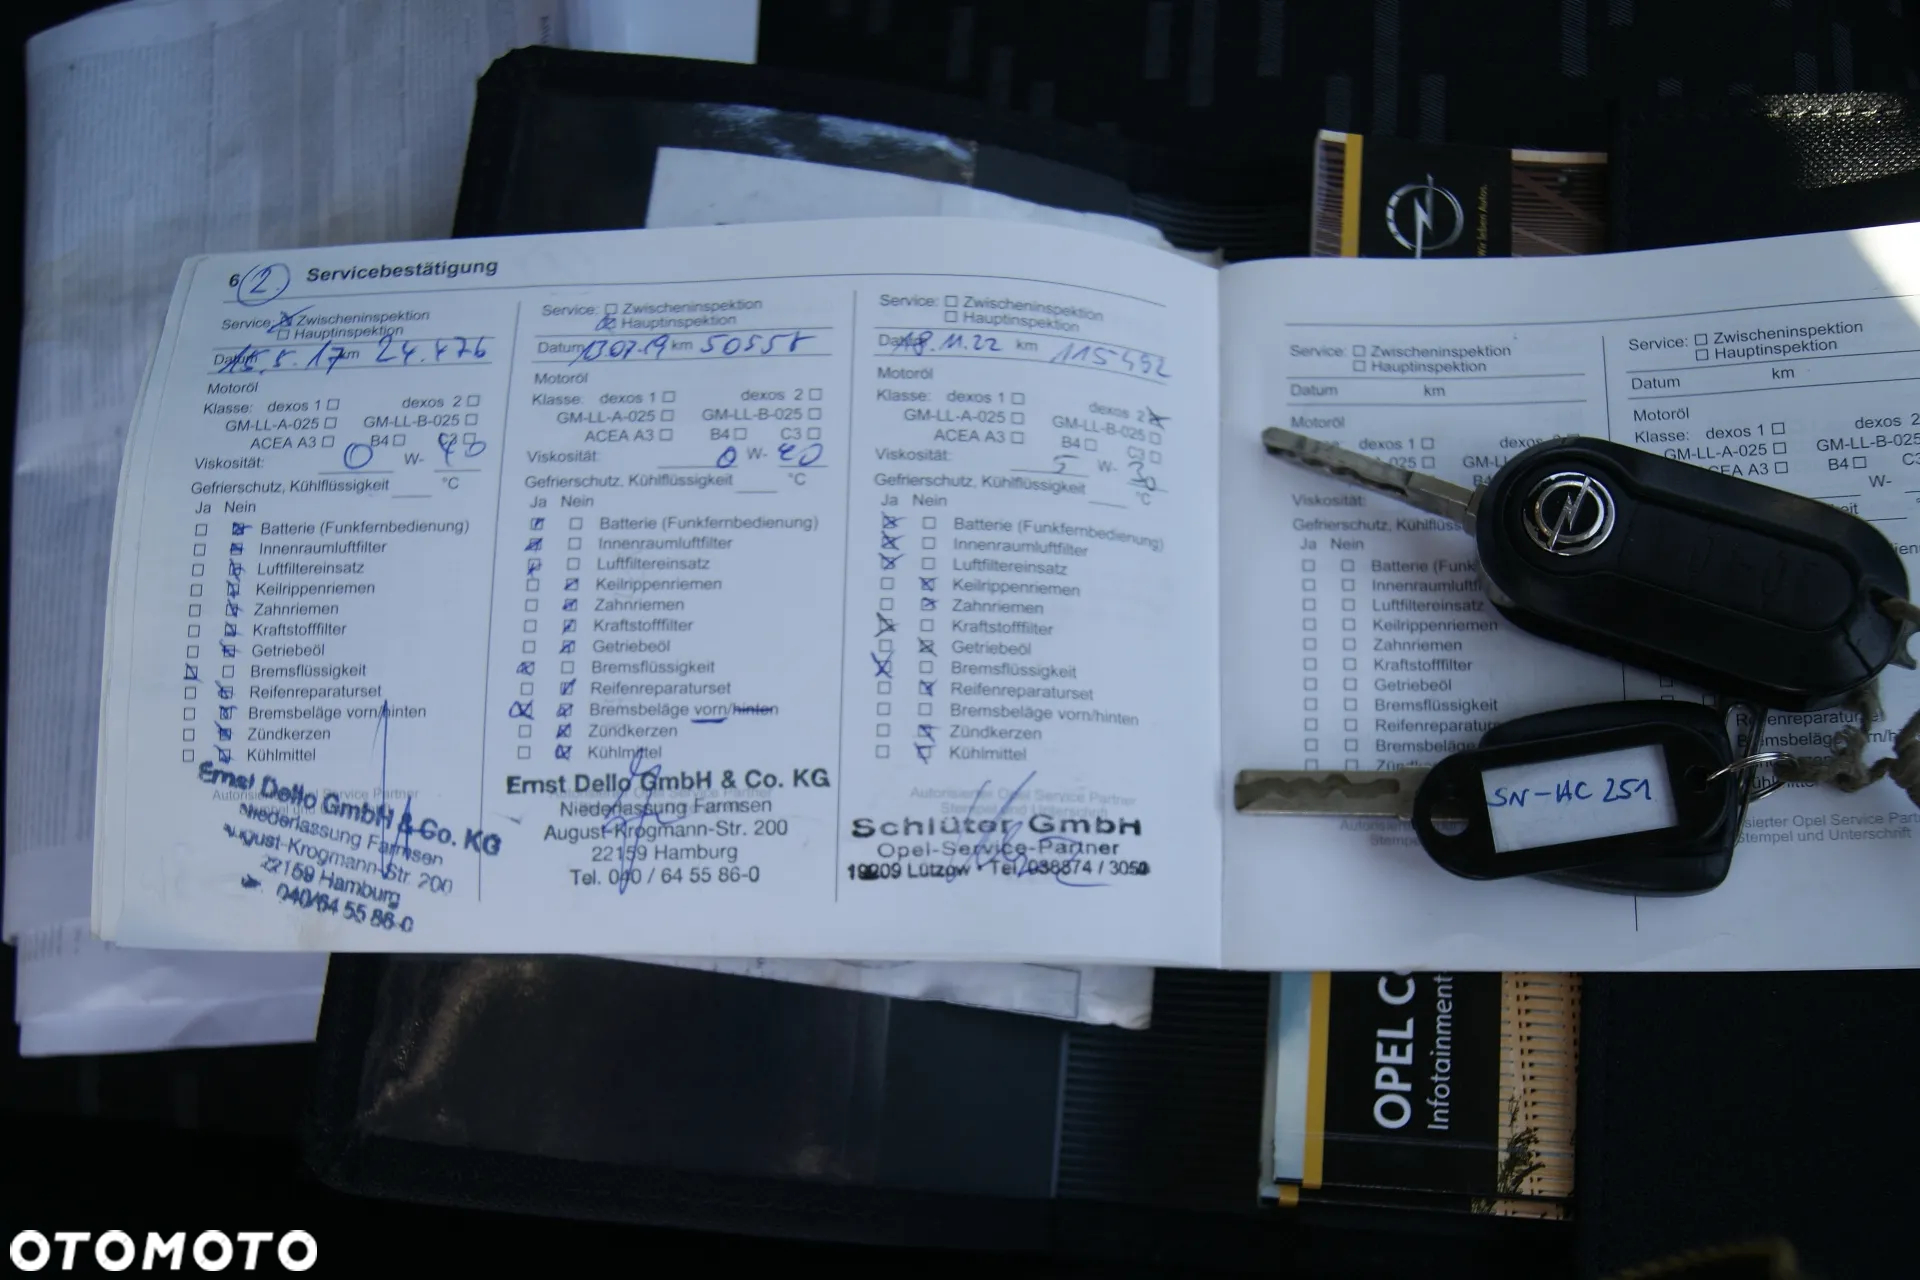 Wir leben Autos.
6 2. Servicebestätigung
Service: Zwischeninspektion
Hauptinspektion
Datum 15.5.17 km 24.476
Motoröl
Klasse: dexos 1 dexos 2
GM-LL-A-025 GM-LL-B-025
ACEA A3 B4 C3
Viskosität: 0 W- 40
Gefrierschutz, Kühlflüssigkeit °C
Ja Nein
Batterie (Funkfernbedienung)
Innenraumluftfilter
Luftfiltereinsatz
Keilrippenriemen
Zahnriemen
Kraftstofffilter
Getriebeöl
Bremsflüssigkeit
Reifenreparaturset
Bremsbeläge vorn/hinten
Zündkerzen
Kühlmittel
Ernst Dello GmbH & Co. KG
Niederlassung Farmsen
August-Krogmann-Str. 200
22159 Hamburg
040/64 55 86-0
Service: Zwischeninspektion
Hauptinspektion
Datum 13.07.19 km 50558
Motoröl
Klasse: dexos 1 dexos 2
GM-LL-A-025 GM-LL-B-025
ACEA A3 B4 C3
Viskosität: 0 W- 40
Gefrierschutz, Kühlflüssigkeit °C
Ja Nein
Batterie (Funkfernbedienung)
Innenraumluftfilter
Luftfiltereinsatz
Keilrippenriemen
Zahnriemen
Kraftstofffilter
Getriebeöl
Bremsflüssigkeit
Reifenreparaturset
Bremsbeläge vorn/hinten
Zündkerzen
Kühlmittel
Ernst Dello GmbH & Co. KG
Niederlassung Farmsen
August-Krogmann-Str. 200
22159 Hamburg
Tel. 040 / 64 55 86-0
Service: Zwischeninspektion
Hauptinspektion
Datum 18.11.22 km 115492
Motoröl
Klasse: dexos 1 dexos 2
GM-LL-A-025 GM-LL-B-025
ACEA A3 B4 C3
Viskosität: 5 W- 30
Gefrierschutz, Kühlflüssigkeit °C
Ja Nein
Batterie (Funkfernbedienung)
Innenraumluftfilter
Luftfiltereinsatz
Keilrippenriemen
Zahnriemen
Kraftstofffilter
Getriebeöl
Bremsflüssigkeit
Reifenreparaturset
Bremsbeläge vorn/hinten
Zündkerzen
Kühlmittel
Autorisierter Opel Service Partner
Stempel und Unterschrift
Schlüter GmbH
Opel-Service-Partner
19209 Lützow · Tel. 038874 / 3050
Service: Zwischeninspektion
Hauptinspektion
Datum km
Motoröl
dexos 1 dexos
Viskosität:
Ja Nein
Luftfiltereinsatz
Keilrippenriemen
Zahnriemen
Kraftstofffilter
Getriebeöl
Bremsflüssigkeit
Bremsbeläge
Service: Zwischeninspektion
Hauptinspektion
Datum km
Motoröl
Klasse: dexos 1
GM-LL-A-025
ACEA A3 B4
W-
Stempel und Unterschrift
SN-HC 251
OPEL
Infotainment
OTOMOTO